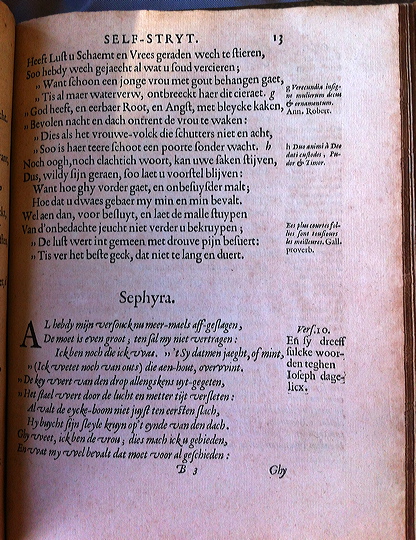 SELF-STRYT. 13
Heeft Lust u Schaemt en Vrees geraden wech te stieren,
Soo hebdy wech gejaecht al wat u soud vercieren;
„ Want schoon een jonge vrou met gout behangen gaet,
„ Tis al maer waterverw, ontbreeckt haer dit cieraet. g
„ God heeft, en eerbaer Root, en Angst, met bleycke kaken,
„ Bevolen nacht en dach ontrent de vrou te waken:
„ Dies als het vrouwe-volck die schutters niet en acht,
„ Soo is haer teere schoot een poorte sonder wacht. h
Noch oogh, noch dachtich woort, kan uwe saken stijven,
Dus, wildy sijn geraen, soo laet u voorstel blijven:
Want hoe ghy vorder gaet, en onbesuysder malt;
Hoe dat u dwaes gebaer my min en min bevalt.
Wel aen dan, voor besluyt, en laet de malle stuypen
Van d'onbedachte jeucht niet verder u bekruypen;
„ De lust wert int gemeen met drouve pijn besuert:
„ Tis ver het beste geck, dat niet te lang en duert.
g Verecundia insigne mulierum decus
& ornamentum.
Ann. Robert.
h Duo animi à Deo
dati custodes, Pudor
& Timor.
Les plus courtes folies
sont tousiours
les meilleures. Gall.
proverb.
Sephyra.
AL hebdy mijn versouck nu meer-maels aff-geslagen,
De moet is even groot; ten sal my niet vertragen:
Ick ben noch die ick was. „ 't Sy datmen jaeght, of mint,
„ (Ick weet noch van ouws) die aen-hout, overwint.
„ De key wert van den drop allengskens uyt-gegeten,
„ Het stael wert door de lucht en metter tijt versleten:
Al valt de eycke-boom niet juyst ten eersten slach,
Hy buycht sijn steyle kruyn op't eynde van den dach.
Ghy weet, ick ben de vrou; dies mach ick u gebieden,
En wat my wel bevalt dat moet voor al geschieden:
Vers. 10.
En sy dreeff
sulcke woorden
teghen
Ioseph dagelicx.
B 3 Ghy